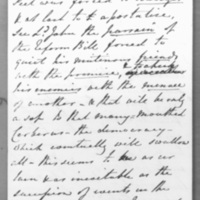 Peel was forced to
& at last to a portfolio,
See Ld John the parrain of
the Reform Bill forced to
quiet his mutinous friends
with the promise,
his enemies with the menace
of another - & that will be only
a sop to that many mouthed
Cerberus - the democracy -
which eventually will swallow
all - this seems to me as
turn was inevitable as the
succession of events in the